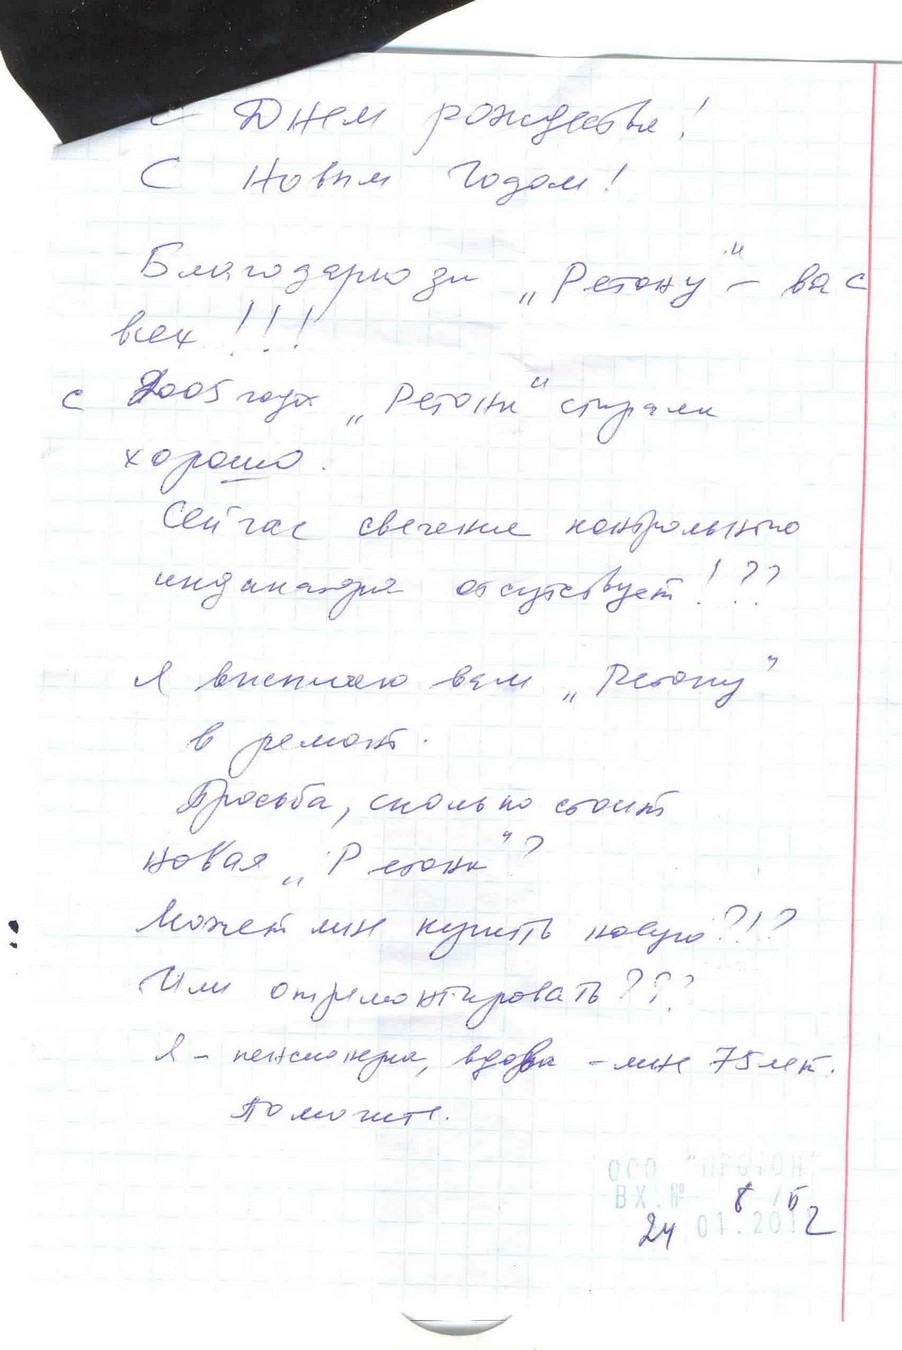 С Днем рождества!
С Новым Годом!
Благодарю за „Ретону" – вас
всех!!!
с 2005 года „Ретона" стирала
хорошо.
Сейчас свечение контрольного
индикатора отсутствует!??
Я высылаю вам „Ретону"
в ремонт.
Просьба, сколько стоит
новая „Ретона"?
Может мне купить новую?!?
Или отремонтировать???
Я – пенсионерка, вдова – мне 75 лет.
Помогите.
ООО
ВХ.№ 8 /Б
24 01.2012